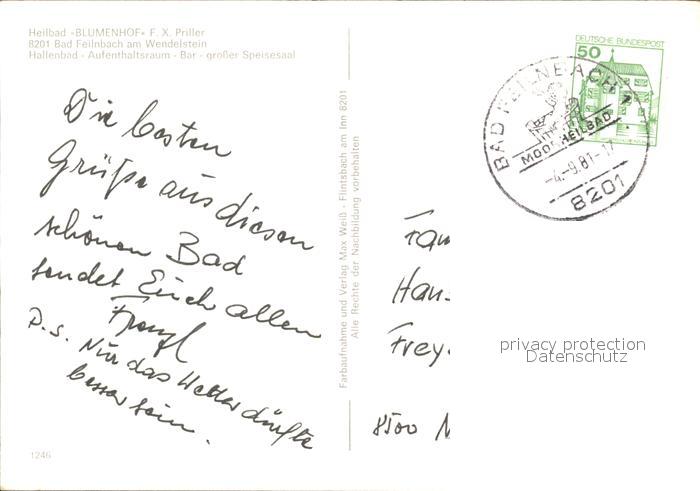 Heilbad »BLUMENHOF« F. X. Priller
8201 Bad Feilnbach am Wendelstein
Hallenbad - Aufenthaltsraum - Bar - großer Speisesaal
Die besten
Grüße aus diesem
schönen Bad
sendet Euch allen
Franzl
P.S. Nur das Wetter dürfte
besser sein.
1246
Farbaufnahme und Verlag Max Weiß - Flintsbach am Inn 8201
Alle Rechte der Nachbildung vorbehalten
DEUTSCHE BUNDESPOST
50
BAD FEILNBACH
MOORHEILBAD
-4.-9.81-17
8201
Fam
Han
Frey
8500 N
privacy protection
Datenschutz